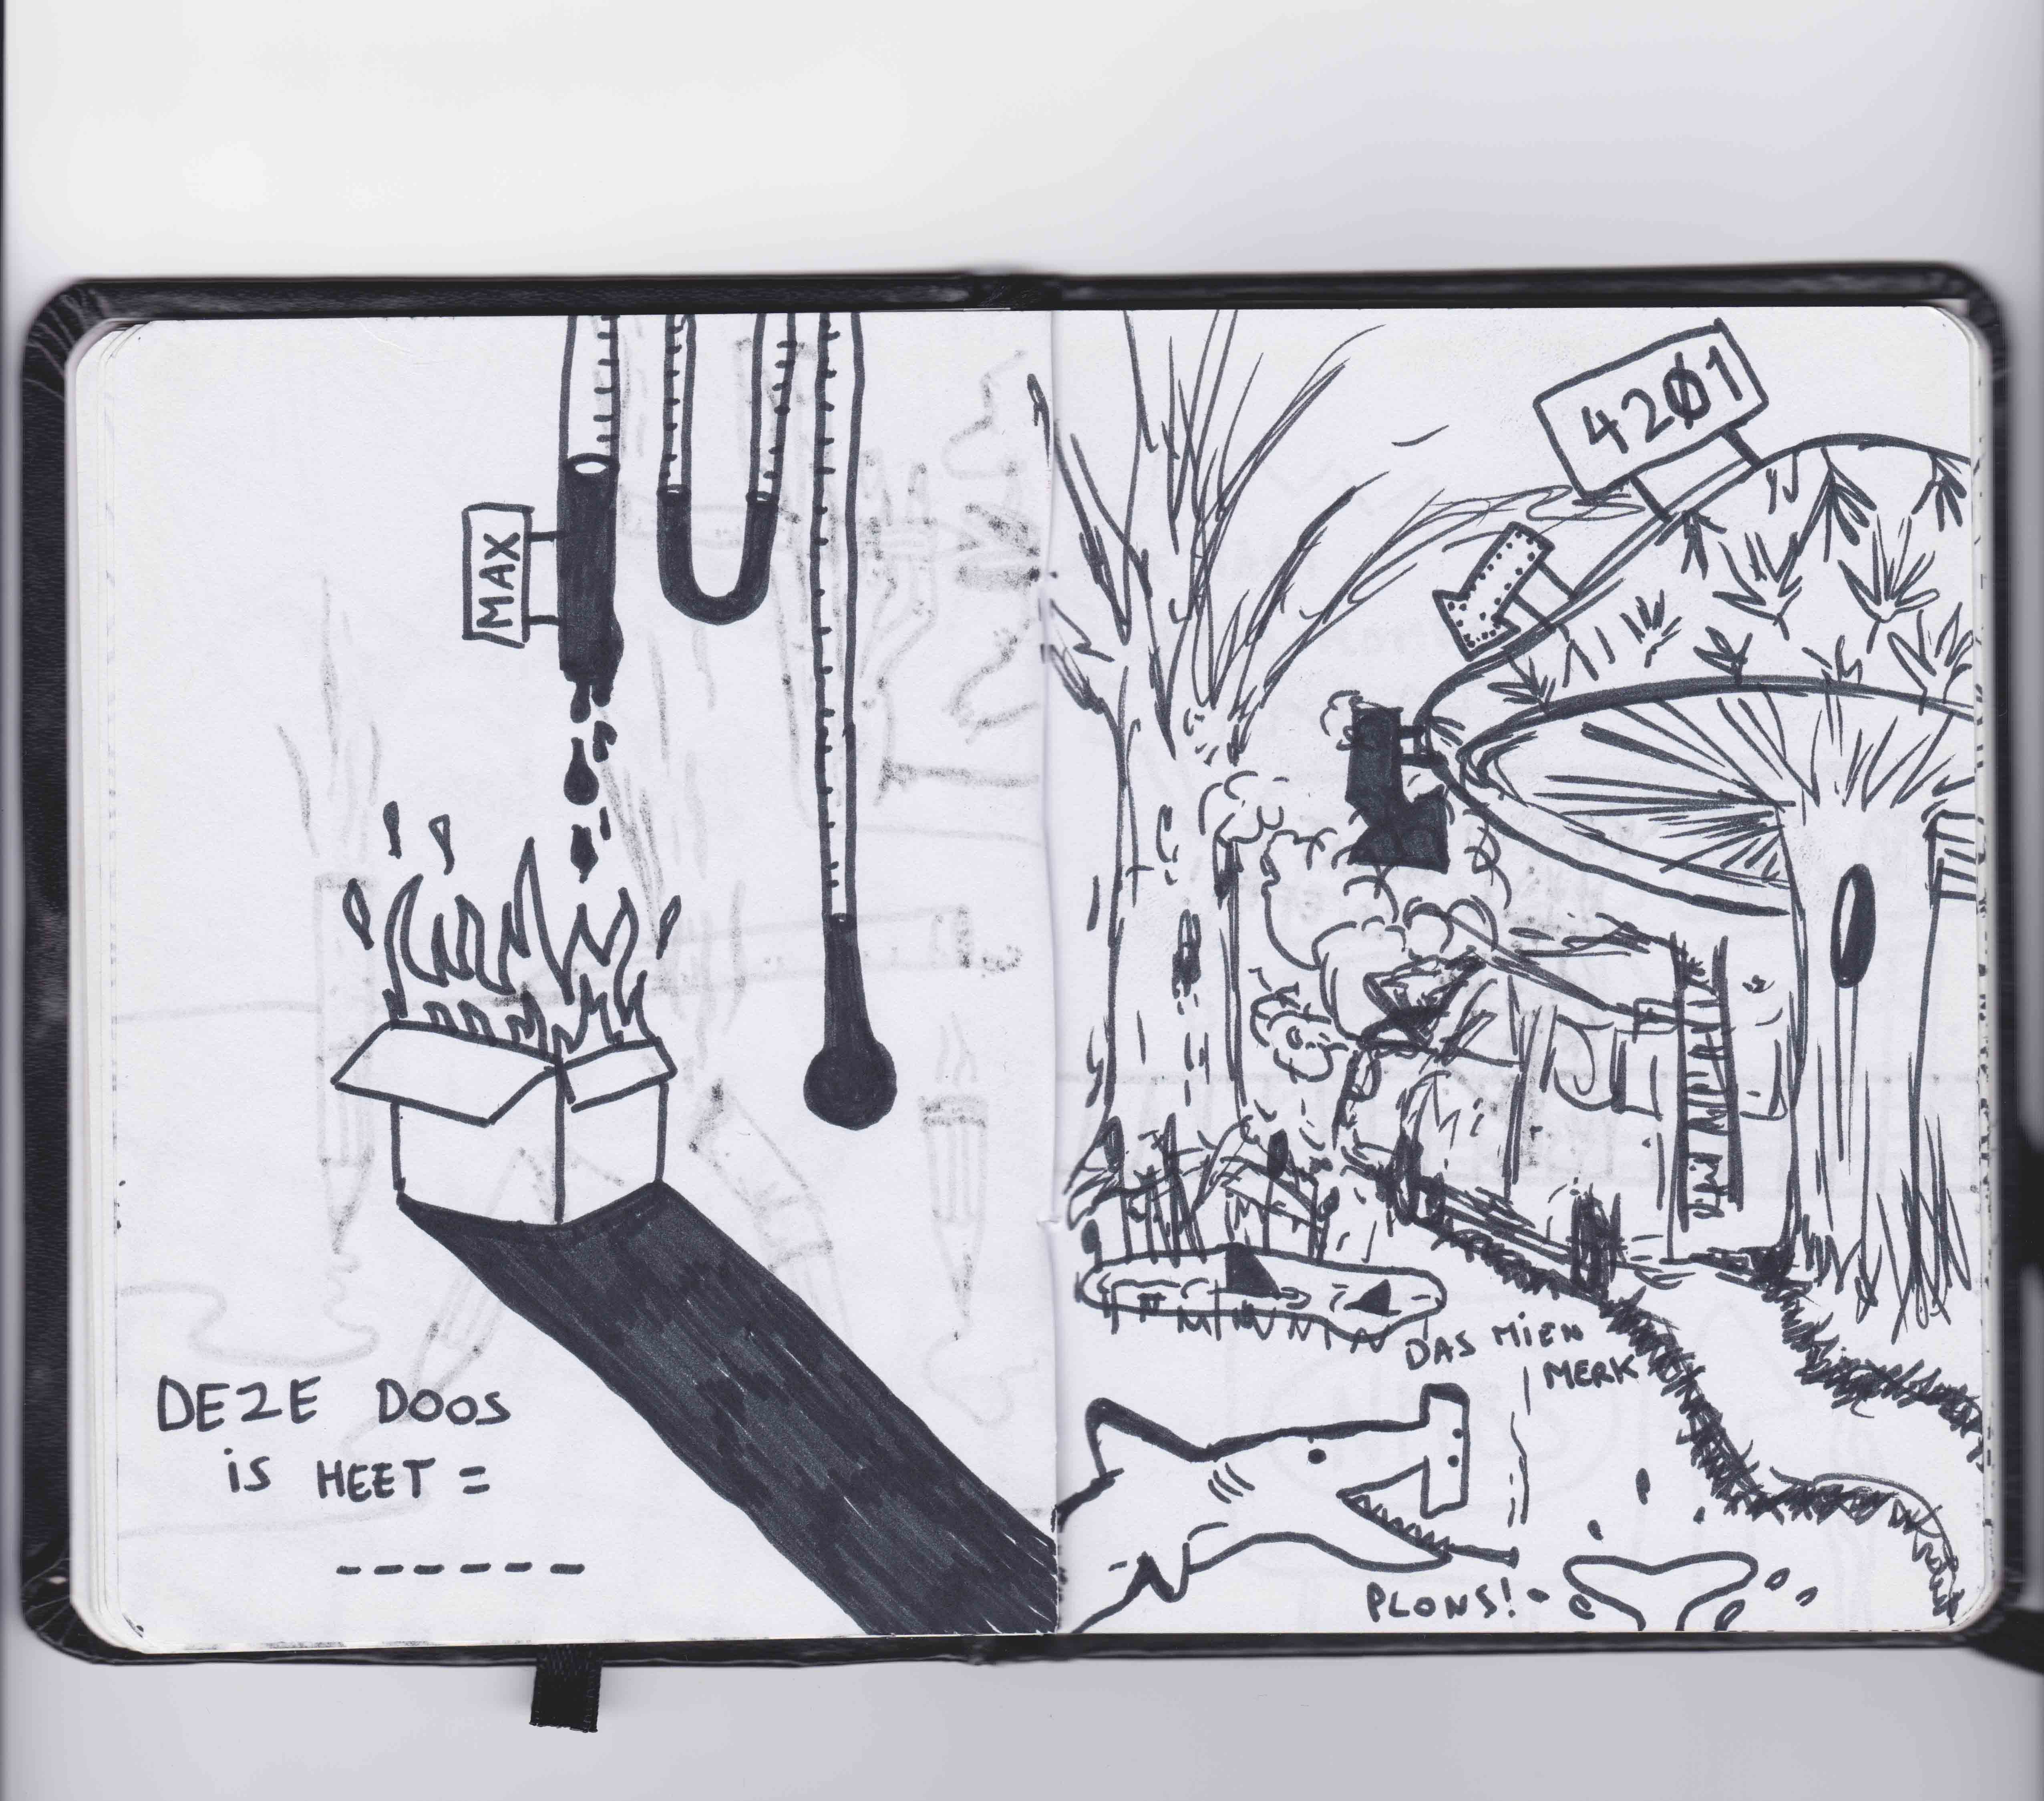 MAX
DEZE DOOS
iS HEET =
------
42Ø1
DAS MiEN
MERK
PLONS!